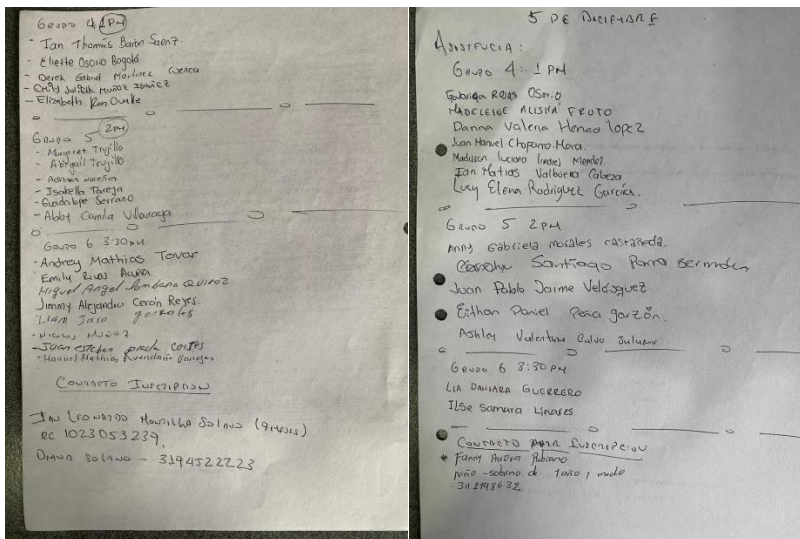 Grupo 4 1PM
- Ian Thomas Baron Saenz
- Eliette Osorio Bogotá
- Derek Gabriel Martinez Cuenca
- Emily Judith Muñoz Ibañez
- Elizabeth
Grupo 5 2PM
- Margaret Trujillo
- Abigail Trujillo
- Isabella Pareja
- Guadalupe Serrano
- Abby Camila
Grupo 6 3:30PM
- Andrey Mathias Tovar
Emily Rivas Acuña
Miguel Angel Quiroz
Jimmy Alejandro Cerón Reyes.
Liam Jaco gonzales
- Nicolas Muñoz
- Juan esteban prada cortés
- Manuel Mathias Avendaño Vanegas
Contacto Inscripcion
Ian Leonardo Solano (9 meses)
RC 1023053239.
Diana Solano - 3194522223
5 DE DICIEMBRE
Asistencia:
Grupo 4: 1 PM
Gabriela Rojas Osorio
MADELEINE ALISHA FRUTO
Danna Valeria Henao lopez
Juan Manuel Chaparro Mora.
Madisson Luciana Mendez
Ian Matias Valbuena Cabeza
Lucy Elena Rodriguez García.
Grupo 5 2PM
Anny Gabriela morales castañeda.
Santiago Parra Bermudez
Juan Pablo Jaime Velásquez
Eithan Daniel Peña garzón.
Ashley Valentina Calvo
Grupo 6 3:30 PM
LIA DAHIARA GUERRERO
Ilse Samara Linares
Contacto para Inscripcion
* Fanny Aurora Rubiano
niño - sobrino de 1 año y medio